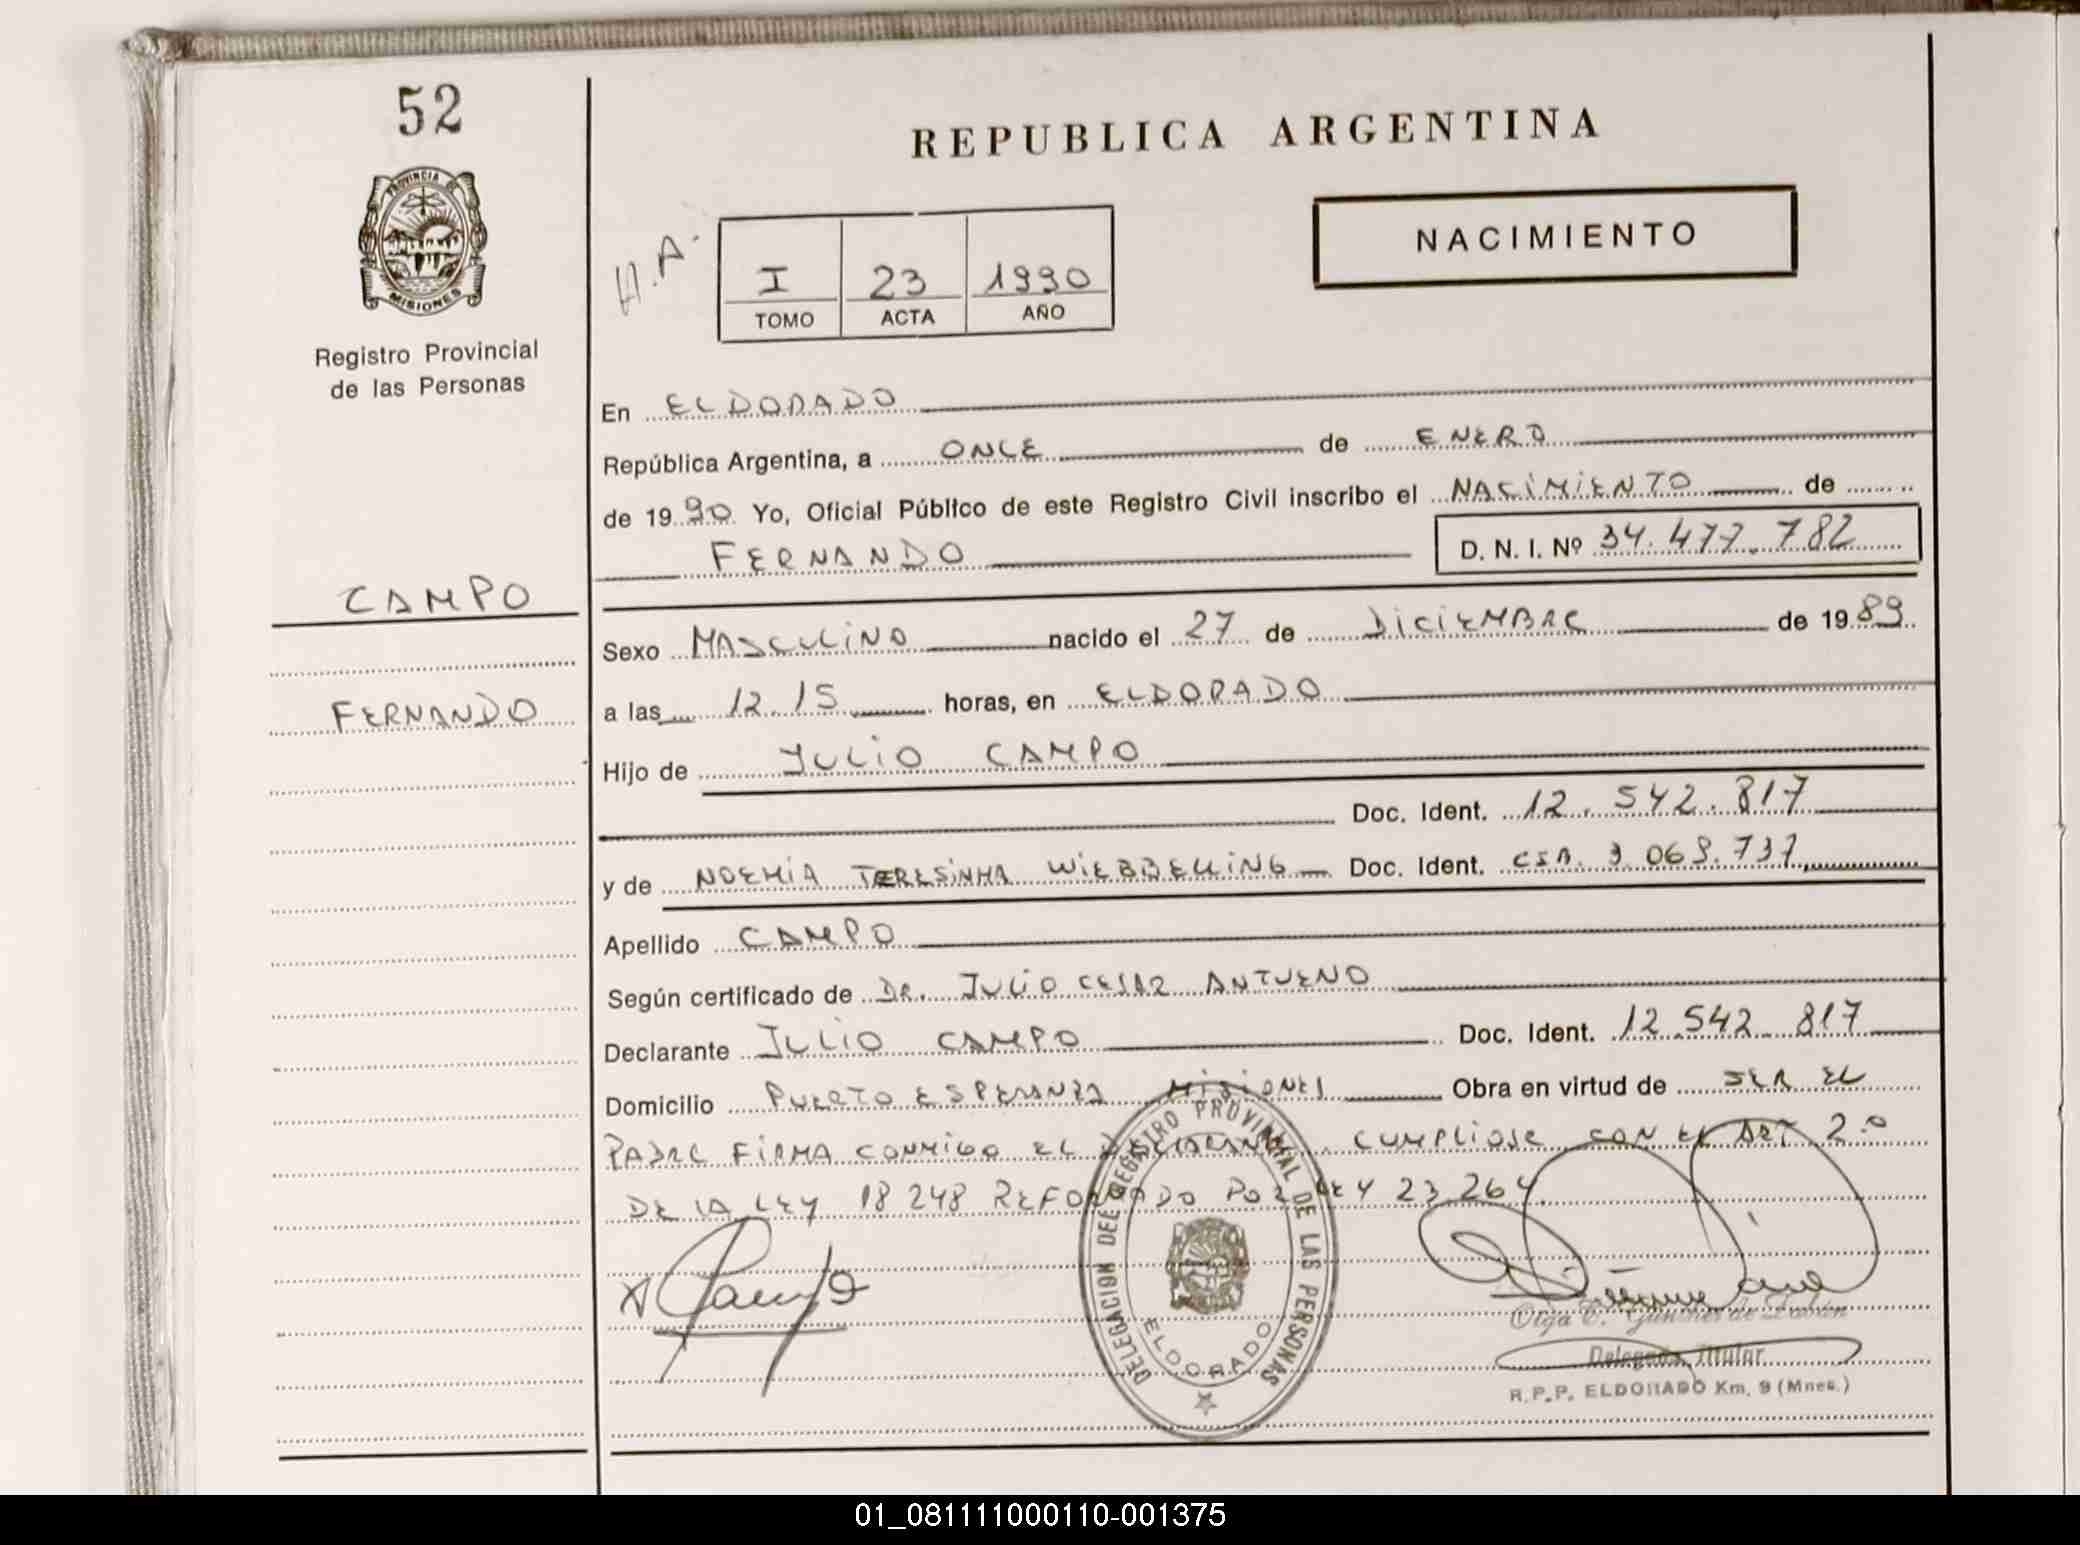 52
PROVINCIA DE
MISIONES
Registro Provincial
de las Personas
CAMPO
FERNANDO
REPUBLICA ARGENTINA
H.A.
I 23 1990
TOMO ACTA AÑO
NACIMIENTO
En ELDORADO
República Argentina, a ONCE de ENERO
de 1990 Yo, Oficial Público de este Registro Civil inscribo el NACIMIENTO de
FERNANDO D. N. I. Nº 34.477.782
Sexo MASCULINO nacido el 27 de DICIEMBRE de 1989
a las 12.15 horas, en ELDORADO
Hijo de JULIO CAMPO
Doc. Ident. 12.542.817
y de NOEMIA TERESINHA WIEBBELLING Doc. Ident. 3.069.737
Apellido CAMPO
Según certificado de DR. JULIO CESAR ANTUENO
Declarante JULIO CAMPO Doc. Ident. 12.542.817
Domicilio PUERTO ESPERANZA MISIONES Obra en virtud de SER EL
PADRE FIRMA CONMIGO EL DECLARANTE. CUMPLIOSE CON EL ART 2º
DE LA LEY 18248 REFORMADO POR LEY 23264.
DELEGACION DEL REGISTRO PROVINCIAL DE LAS PERSONAS
ELDORADO
Olga E.
Delegada Titular
R.P.P. ELDORADO Km. 9 (Mnes.)
01_081111000110-001375